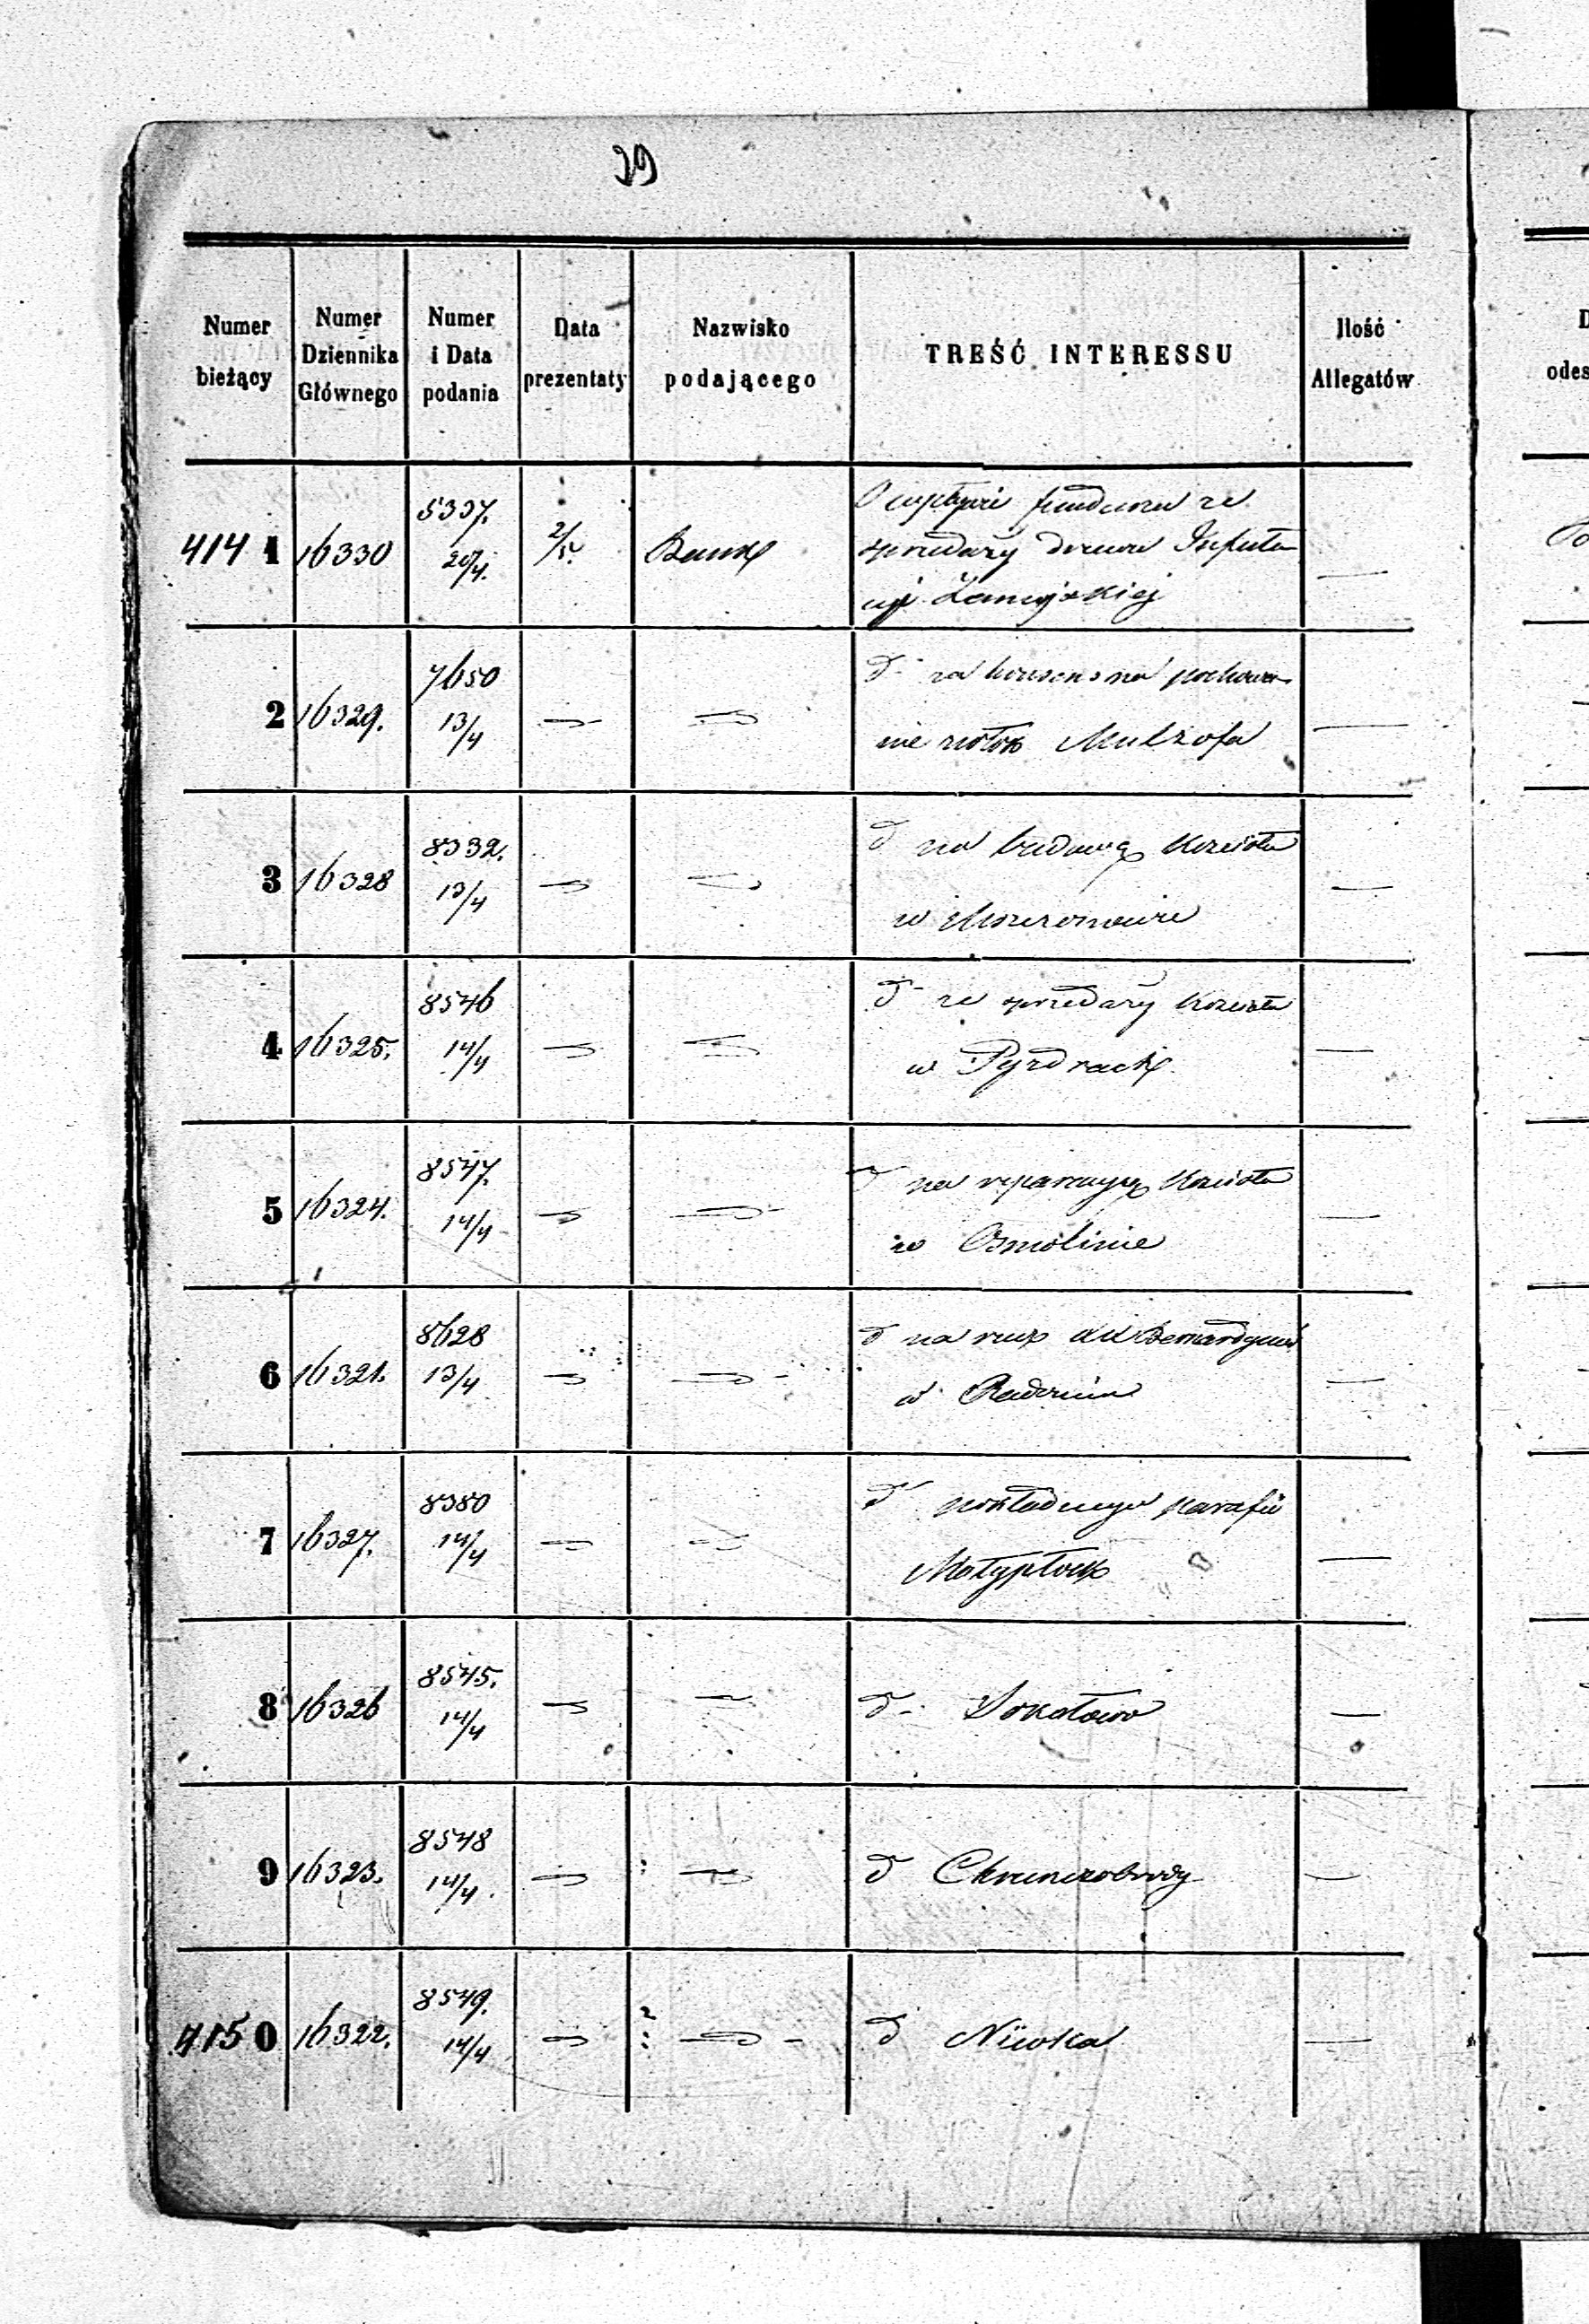 39
Numer bieżący
Numer Dziennika Głównego
Numer i Data podania
Data prezentaty
Nazwisko podającego
TREŚĆ INTERESSU
Ilość Allegatów
D
odes
4141 16330 5337. 20/4. 2/5. Bank O wpływie funduszu ze
sprzedaży drzewa Infuła
cyi Zamojskiej
2 16329. 7650 13/4 dº za konsens na pochowa
nie zwłok
3 16328 8332. 13/4 dº na budowę Kościoła
w Moszczonowie
4 16325. 8546 14/4 dº ze sprzedaży Kościoła
w Pyzdrach
5 16324. 8547. 14/4 dº na reparacyą Kościoła
w Osmolinie
6 16321. 8628 13/4 dº na rzecz XX Bernardynów
w Radomiu
7 16327. 8380 14/4 dº pokładnego parafii
Małypłock
8 16326 8545. 14/4 dº Sokołowo
9 16323. 8548 14/4 dº Chruszczobrody
4150 16322. 8549. 14/4 dº Niwka